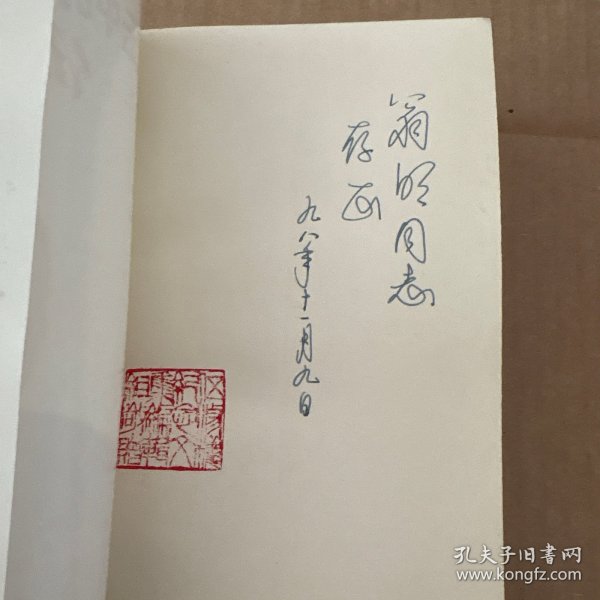 翁明同志
存正
九八年十一月九日
孔夫子旧书网
www.kongfz.com